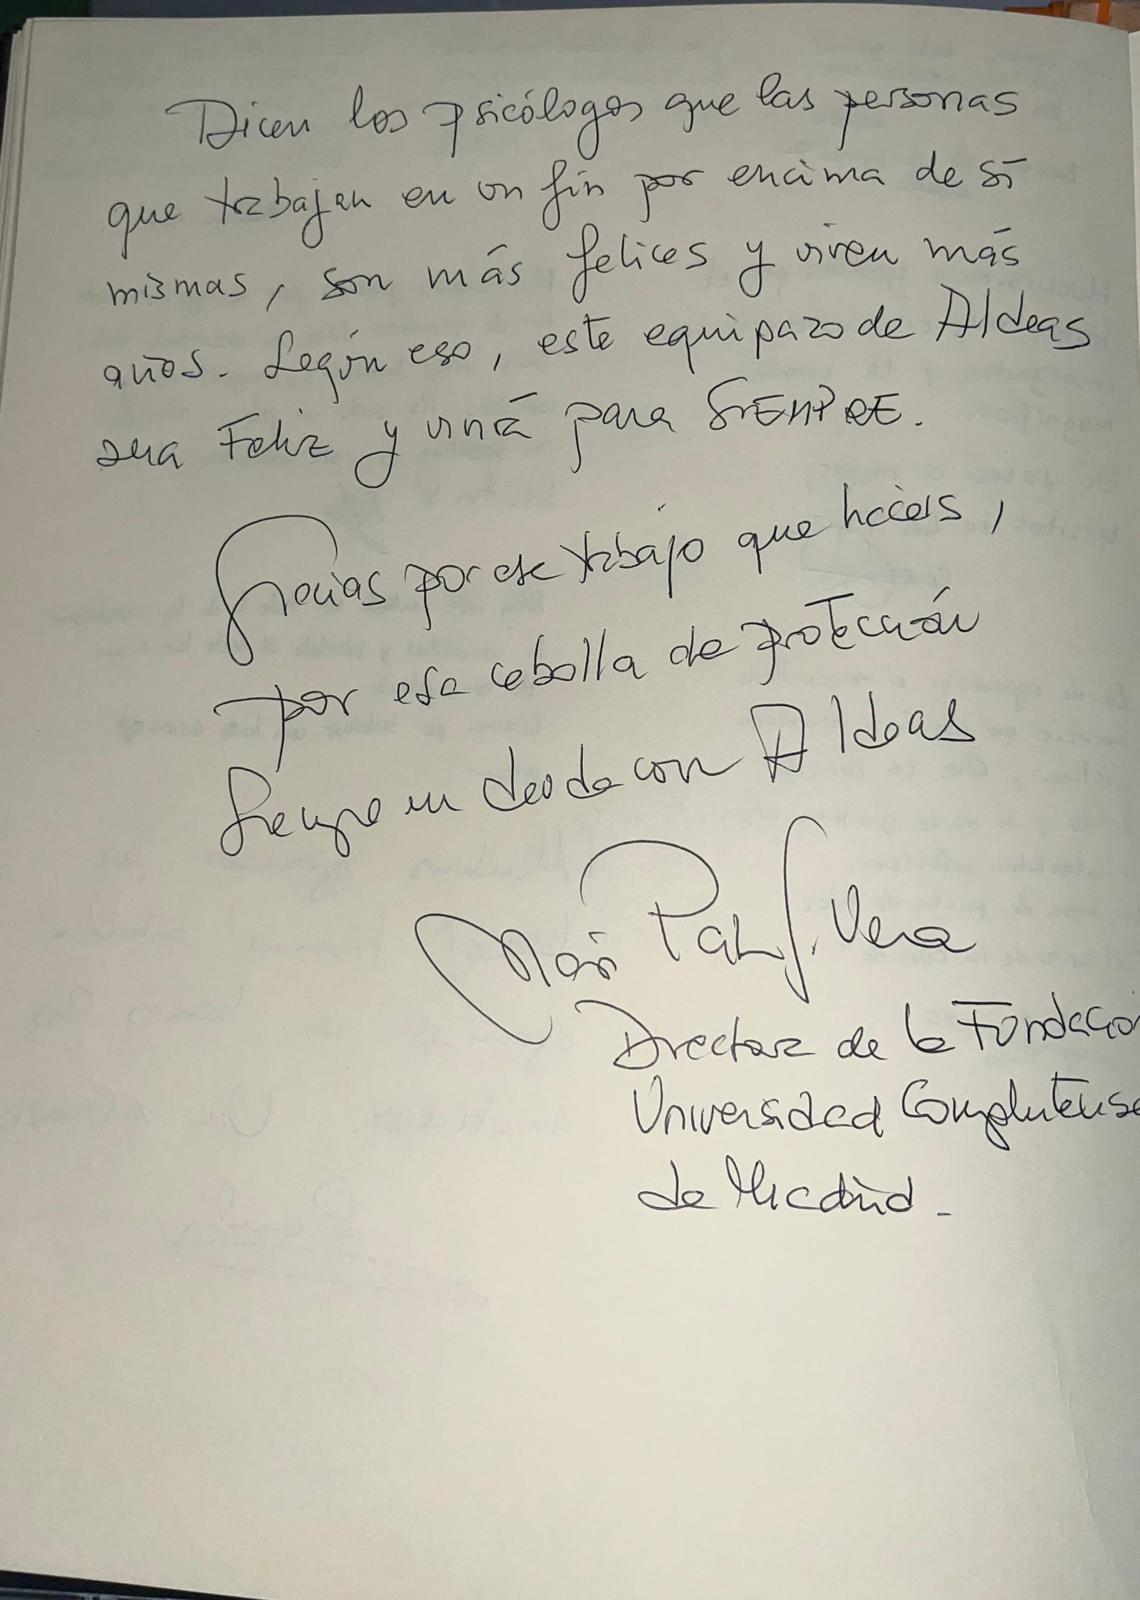 Dicen los psicólogos que las personas
que trabajan en un fin por encima de sí
mismas, son más felices y viven más
años. Según eso, este equipazo de Aldeas
será Feliz y vivirá para SIEMPRE.
Gracias por ese trabajo que hacéis,
por esa cebolla de protección
Siempre en deuda con Aldeas
García Vera
Directora de la Fundación
Universidad Complutense
de Madrid.